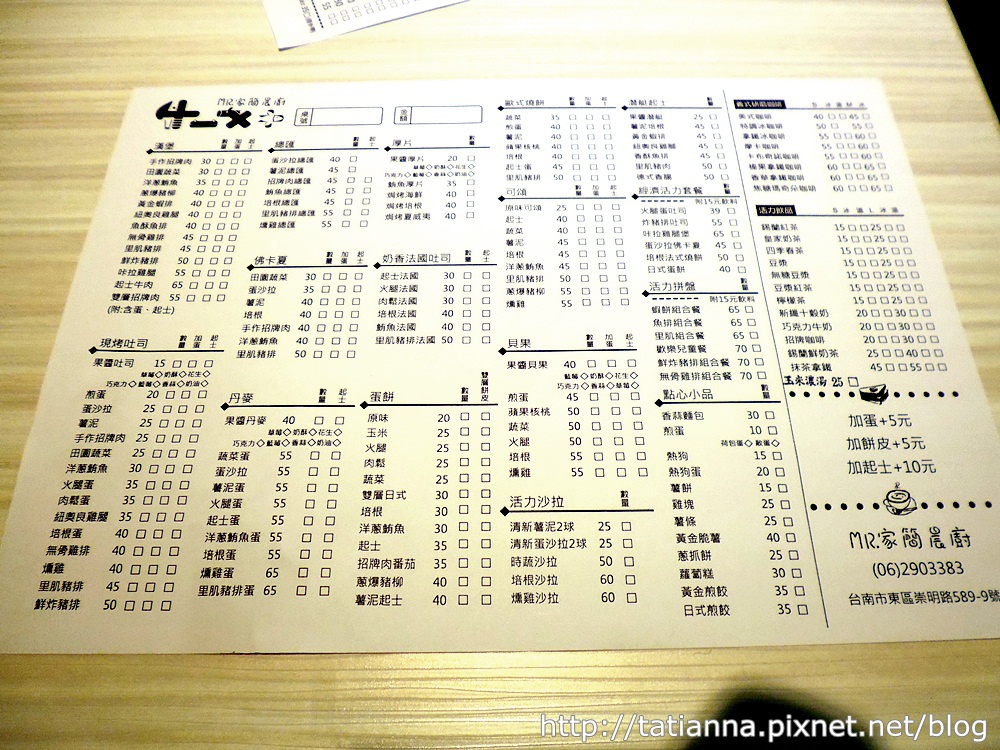 MR.家簡農廚
桌號
金額
漢堡 數量 加蛋 起士
手作招牌肉 30 □ □ □
田園蔬菜 30 □ □ □
洋蔥鮪魚 35 □ □ □
蔥爆豬柳 40 □ □ □
黃金蝦排 40 □ □ □
紐奧良雞腿 40 □ □ □
魚酥魚排 40 □ □ □
無骨雞排 45 □ □ □
里肌豬排 45 □ □ □
鮮炸豬排 50 □ □ □
咔拉雞腿 55 □ □ □
起士牛肉 65 □ □ □
雙層招牌肉 55 □ □ □
(附:含蛋、起士)
現烤吐司 數量 加蛋 起士
果醬吐司 15 □ □ □
草莓◇奶酥◇花生◇
巧克力◇藍莓◇香蒜◇奶油◇
煎蛋 20 □ □ □
蛋沙拉 25 □ □ □
薯泥 25 □ □ □
手作招牌肉 25 □ □ □
田園蔬菜 25 □ □ □
洋蔥鮪魚 30 □ □ □
火腿蛋 35 □ □ □
肉鬆蛋 35 □ □ □
紐奧良雞腿 35 □ □ □
培根蛋 40 □ □ □
無骨雞排 40 □ □ □
燻雞 40 □ □ □
里肌豬排 45 □ □ □
鮮炸豬排 50 □ □ □
總匯 數量 起士
蛋沙拉總匯 40 □ □
薯泥總匯 45 □ □
招牌肉總匯 45 □ □
鮪魚總匯 55 □ □
里肌豬排總匯 55 □ □
燻雞總匯 55 □ □
佛卡夏 數量 加蛋 起士
田園蔬菜 30 □ □ □
蛋沙拉 35 □ □ □
薯泥 40 □ □ □
培根 40 □ □ □
手作招牌肉 40 □ □ □
洋蔥鮪魚 40 □ □ □
里肌豬排 50 □ □ □
丹麥 數量 起士
果醬丹麥 40 □ □
草莓◇奶酥◇花生◇
巧克力◇藍莓◇香蒜◇奶油◇
蔬菜蛋 55 □ □
蛋沙拉 55 □ □
薯泥蛋 55 □ □
火腿蛋 55 □ □
起士蛋 55 □ □
洋蔥鮪魚蛋 55 □ □
培根蛋 55 □ □
燻雞蛋 65 □ □
里肌豬排蛋 65 □ □
厚片 數量 起士
果醬厚片 20 □ □
草莓◇奶酥◇花生◇
巧克力◇藍莓◇香蒜◇奶油◇
鮪魚厚片 35 □ □
焗烤海鮮 40 □ □
焗烤培根 40 □ □
焗烤夏威夷 40 □ □
奶香法國吐司 數量 起士
起士法國 30 □ □
火腿法國 30 □ □
肉鬆法國 30 □ □
培根法國 40 □ □
鮪魚法國 40 □ □
里肌豬排法國 50 □ □
蛋餅 數量 雙層餅皮
原味 20 □ □
玉米 25 □ □
火腿 25 □ □
肉鬆 25 □ □
蔬菜 25 □ □
雙層日式 30 □ □
培根 30 □ □
洋蔥鮪魚 30 □ □
起士 35 □ □
招牌肉番茄 35 □ □
蔥爆豬柳 40 □ □
薯泥起士 40 □ □
歐式燒餅 數量 加蛋 起士
蔬菜 35 □ □ □
煎蛋 40 □ □ □
薯泥 40 □ □ □
蘋果核桃 40 □ □ □
培根 40 □ □ □
起士蛋 45 □ □ □
里肌豬排 50 □ □ □
可頌 數量 加蛋 起士
原味可頌 25 □ □ □
起士 40 □ □ □
蔬菜 45 □ □ □
薯泥 45 □ □ □
培根 45 □ □ □
洋蔥鮪魚 45 □ □ □
里肌豬排 50 □ □ □
蔥爆豬柳 55 □ □ □
燻雞 55 □ □ □
貝果 數量 加蛋 起士
果醬貝果 40 □ □ □
草莓◇奶酥◇花生◇
巧克力◇藍莓◇香蒜◇奶油◇
煎蛋 45 □ □ □
蘋果核桃 50 □ □ □
蔬菜 50 □ □ □
火腿 50 □ □ □
培根 50 □ □ □
燻雞 55 □ □ □
活力沙拉 數量
清新薯泥2球 25 □
清新蛋沙拉2球 25 □
時蔬沙拉 50 □
培根沙拉 60 □
燻雞沙拉 60 □
潛艇起士 數量
果醬潛艇 25 □
薯泥培根 45 □
黃金蝦排 45 □
紐奧雞腿 45 □
香酥魚排 45 □
里肌豬肉 50 □
德式香腸 50 □
經濟活力套餐 數量
附15元飲料
火腿蛋吐司 39 □
炸豬排吐司 55 □
咔拉雞腿堡 65 □
蛋沙拉佛卡夏 45 □
培根法式燒餅 50 □
日式蛋餅 40 □
活力拼盤 數量
附15元飲料
蝦餅組合餐 65 □
魚排組合餐 65 □
里肌組合餐 65 □
歡樂兒童餐 70 □
鮮炸豬排組合餐 70 □
無骨雞排組合餐 70 □
點心小品 數量
香蒜麵包 30 □
煎蛋 10 □
荷包蛋◇ 散蛋◇
熱狗 15 □
熱狗蛋 20 □
薯餅 15 □
雞塊 25 □
薯條 25 □
黃金脆薯 40 □
蔥抓餅 25 □
蘿蔔糕 30 □
黃金煎餃 35 □
日式煎餃 35 □
義式研磨咖啡 S 冰 溫 M 冰
美式咖啡 40 □ □ 45 □
特調冰咖啡 50 □ 55 □
拿鐵冰咖啡 55 □ □ 60 □
摩卡咖啡 55 □ □ 60 □
卡布奇諾咖啡 55 □ □ 60 □
榛果拿鐵咖啡 60 □ □ 65 □
香草拿鐵咖啡 60 □ □ 65 □
焦糖瑪奇朵咖啡 60 □ □ 65 □
活力飲品 S 冰 溫 L 冰 溫
錫蘭紅茶 15 □ □ 25 □ □
皇家奶茶 15 □ □ 25 □ □
四季春茶 15 □ □ 25 □ □
豆漿 15 □ □ 25 □ □
無糖豆漿 15 □ □ 25 □ □
豆漿紅茶 15 □ □ 25 □ □
檸檬茶 15 □ □ 25 □ □
新纖十穀奶 20 □ □ 30 □ □
巧克力牛奶 20 □ □ 30 □ □
招牌咖啡 20 □ □ 30 □ □
錫蘭鮮奶茶 25 □ □ 40 □ □
抹茶拿鐵 45 □ □ 55 □ □
玉米濃湯 25 □
加蛋+5元
加餅皮+5元
加起士+10元
MR.家簡農廚
(06)2903383
台南市東區崇明路589-9號
http://tatianna.pixnet.net/blog